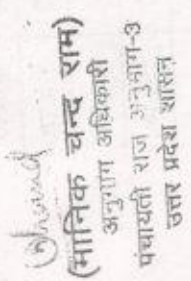 (मानिक चन्द राम)
अनुभाग अधिकारी
पंचायती राज अनुभाग-3
उत्तर प्रदेश शासन